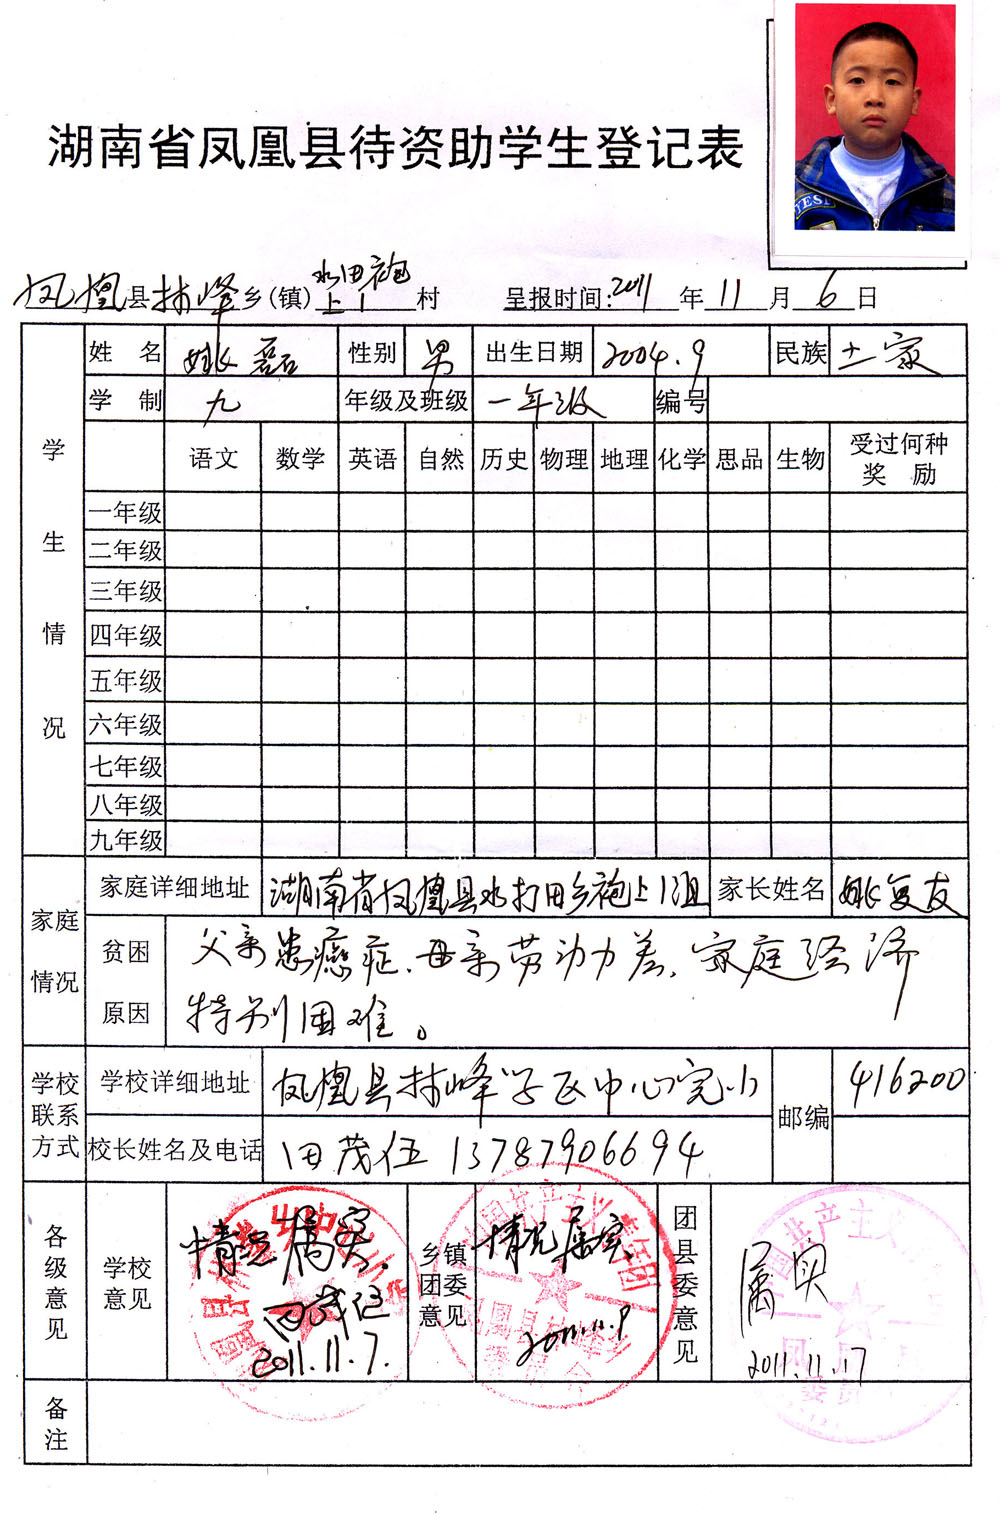 湖南省凤凰县待资助学生登记表
凤凰县林峰乡(镇)水田袍上1村 呈报时间:2011年11月6日
姓名 姚磊 性别 男 出生日期 2004.9 民族 土家
学制 九 年级及班级 一年级 编号
学生情况
语文 数学 英语 自然 历史 物理 地理 化学 思品 生物 受过何种奖励
一年级
二年级
三年级
四年级
五年级
六年级
七年级
八年级
九年级
家庭情况
家庭详细地址 湖南省凤凰县水打田乡袍上1组 家长姓名 姚复友
贫困原因 父亲患癌症、母亲劳动力差、家庭经济
特别困难。
学校联系方式
学校详细地址 凤凰县林峰学区中心完小 邮编 416200
校长姓名及电话 田茂伍 13787906694
各级意见
学校意见 情况属实.
田茂伍
2011.11.7.
乡镇团委意见 情况属实.
2011.11.9
团县委意见 属实
2011.11.17
备注